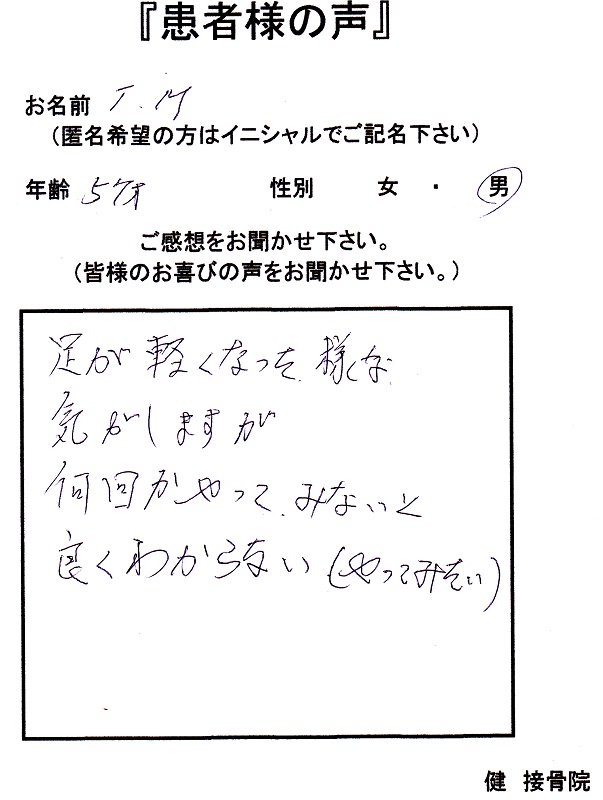 『患者様の声』
お名前 T.M
（匿名希望の方はイニシャルでご記名下さい）
年齢 57才 性別 女・男
ご感想をお聞かせ下さい。
（皆様のお喜びの声をお聞かせ下さい。）
足が軽くなった様な
気がしますが
何回かやってみないと
良くわからない（やってみたい）
健 接骨院